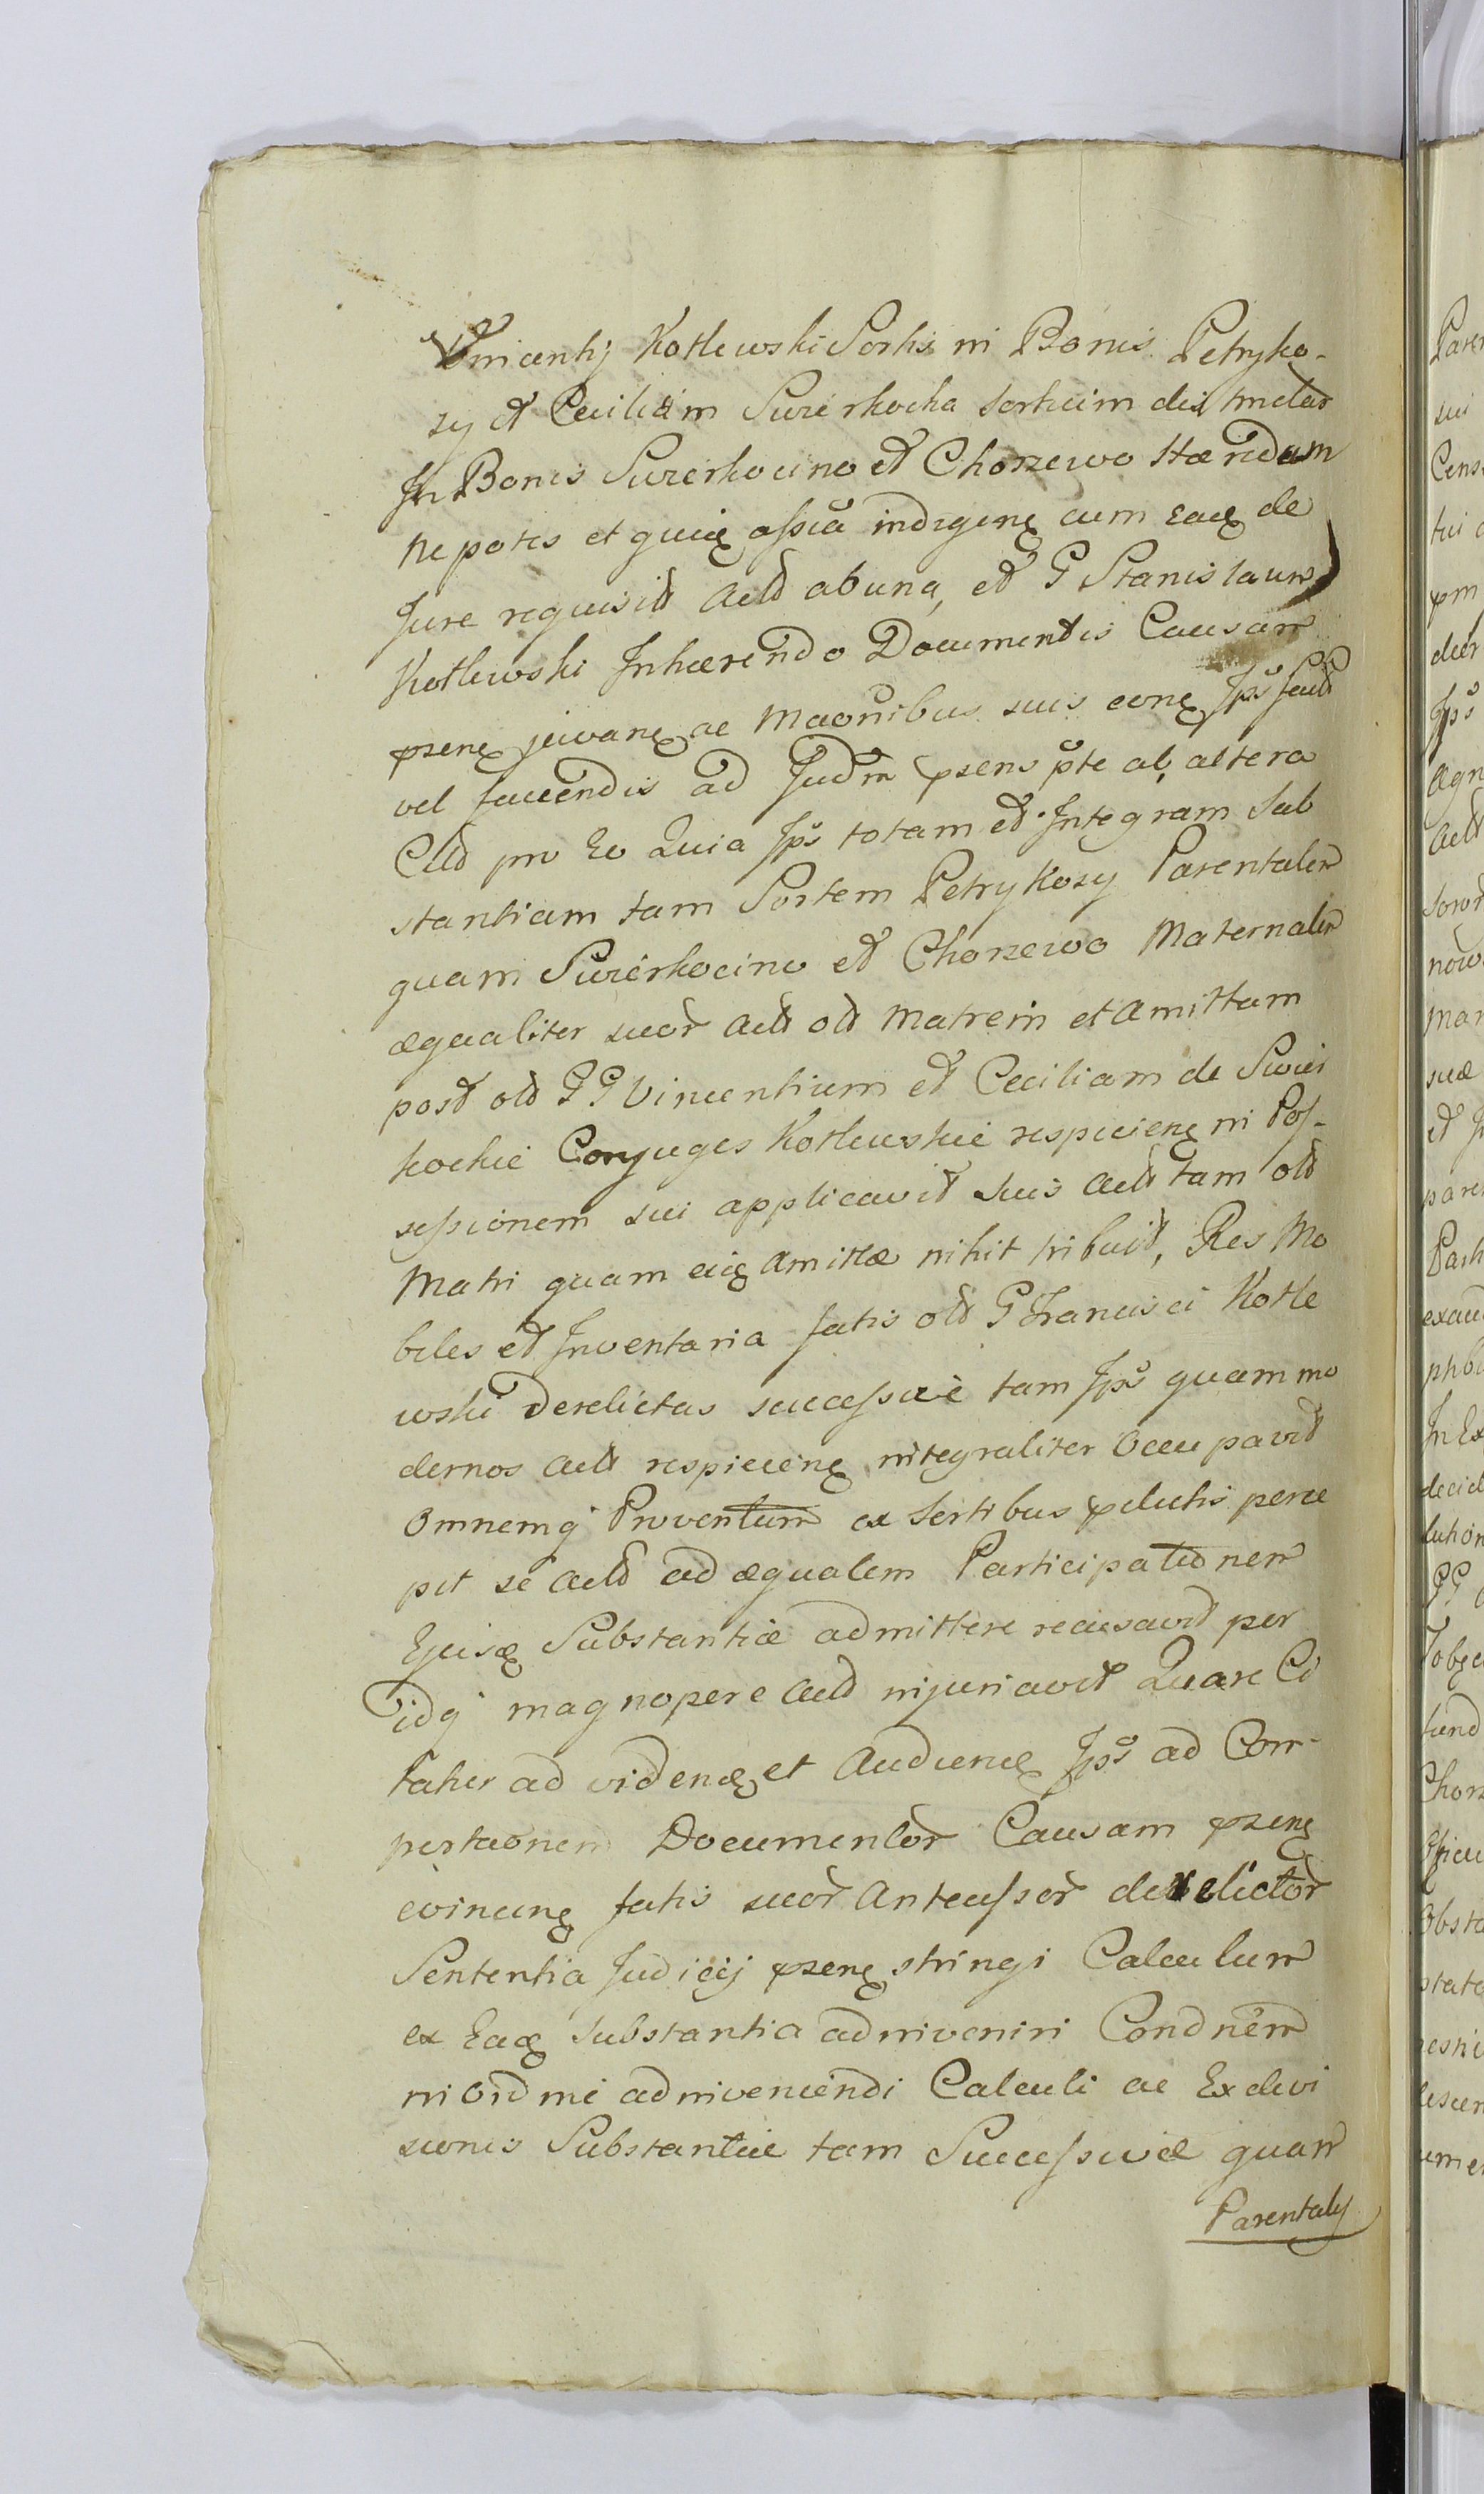 Vincentij Kotlewski Sortis in Bonis Petryko-
zy et Ceciliam Swierkocka sortium dis
In Bonis Swierkocino et Chorzewo Hæredum
Nepotis et assia indigenę cum eadę de
Jure requisit Actt ab una, et G Stanislaum
Kotlewski Inhærendo Documentis Causam
przenę juvanę ac Maonibus suis eonę Jps fact
vel faciendis ad Judm przens pte ab altera
Citt pro Eo Quia Jps totam et Integram Sub
stantiam tam Sortem Petrykozy Parentalem
quam Swierkocino et Chorzewo Maternalem
æqualiter suor Actt olt Matrem et Amittam
post olt GG Vincentium et Ceciliam de Swier
kockie Conjuges Kotlewskie respicienę in Pos-
sessionem sui applicavit suis Actt tam olt
Matri quam eię Amittæ nihil tribuit, Res Mo
biles et Inventaria fatis olt G Francisci Kotle
wski Derelictas successive tam Jps quam mo
dernos Actt respicienę integraliter Occupavit
Omnemq Proventum ex Sortibus pdictis perce
pit se Actt ad æqualem Participationem
Ejusdę Substantiæ admittere recusavit per
idq magnopere Actt injuriavit Quare Ci
tatur ad videndę et Audiendę Jps ad Com-
portaonem Documentor Causam przenę
evincenę fatis suor Antecessor derelictor
Sententia Judicij przenę stringi Calculum
ex Eadę Substantia adinveniri Condnem
in Ordine adinveniendi Calculi ac Exdivi
sionis Substantiæ tam Successivæ quam
Parentalis